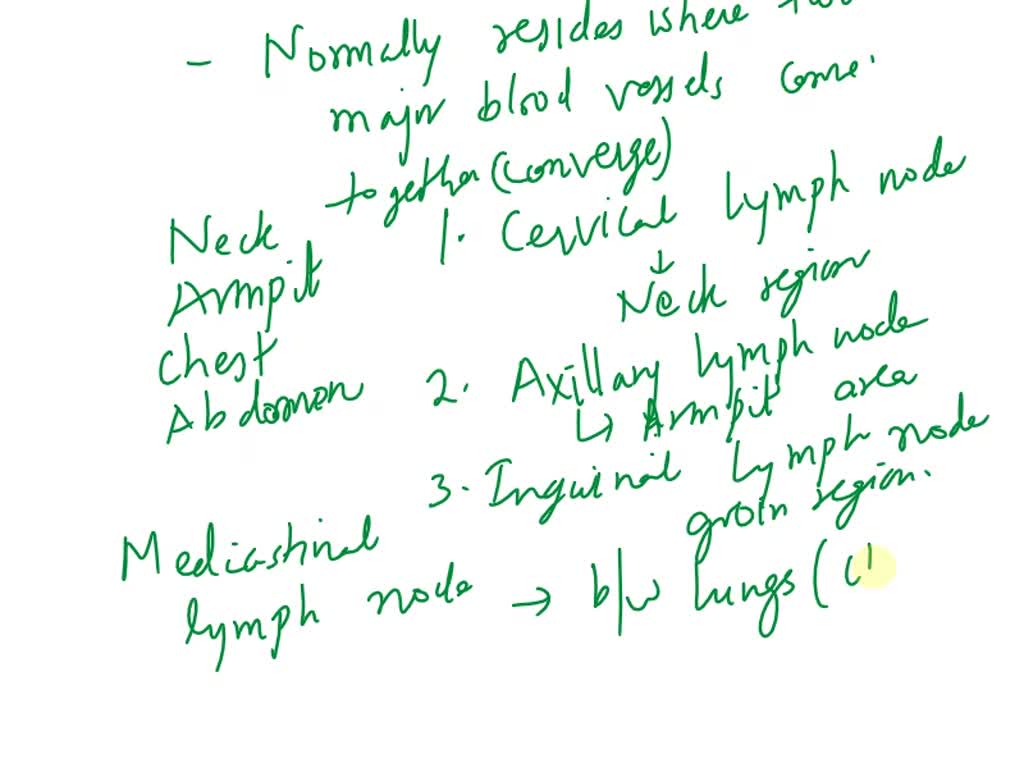 - Normally resides where two
major blood vessels come
together (converge)
Neck
Armpit
Chest
Abdomen
1. Cervical lymph node
↓
Neck region
2. Axillary lymph node
↳ Armpit area
3. Inguinal lymph node
groin region.
Mediastinal
lymph node → b/w lungs (